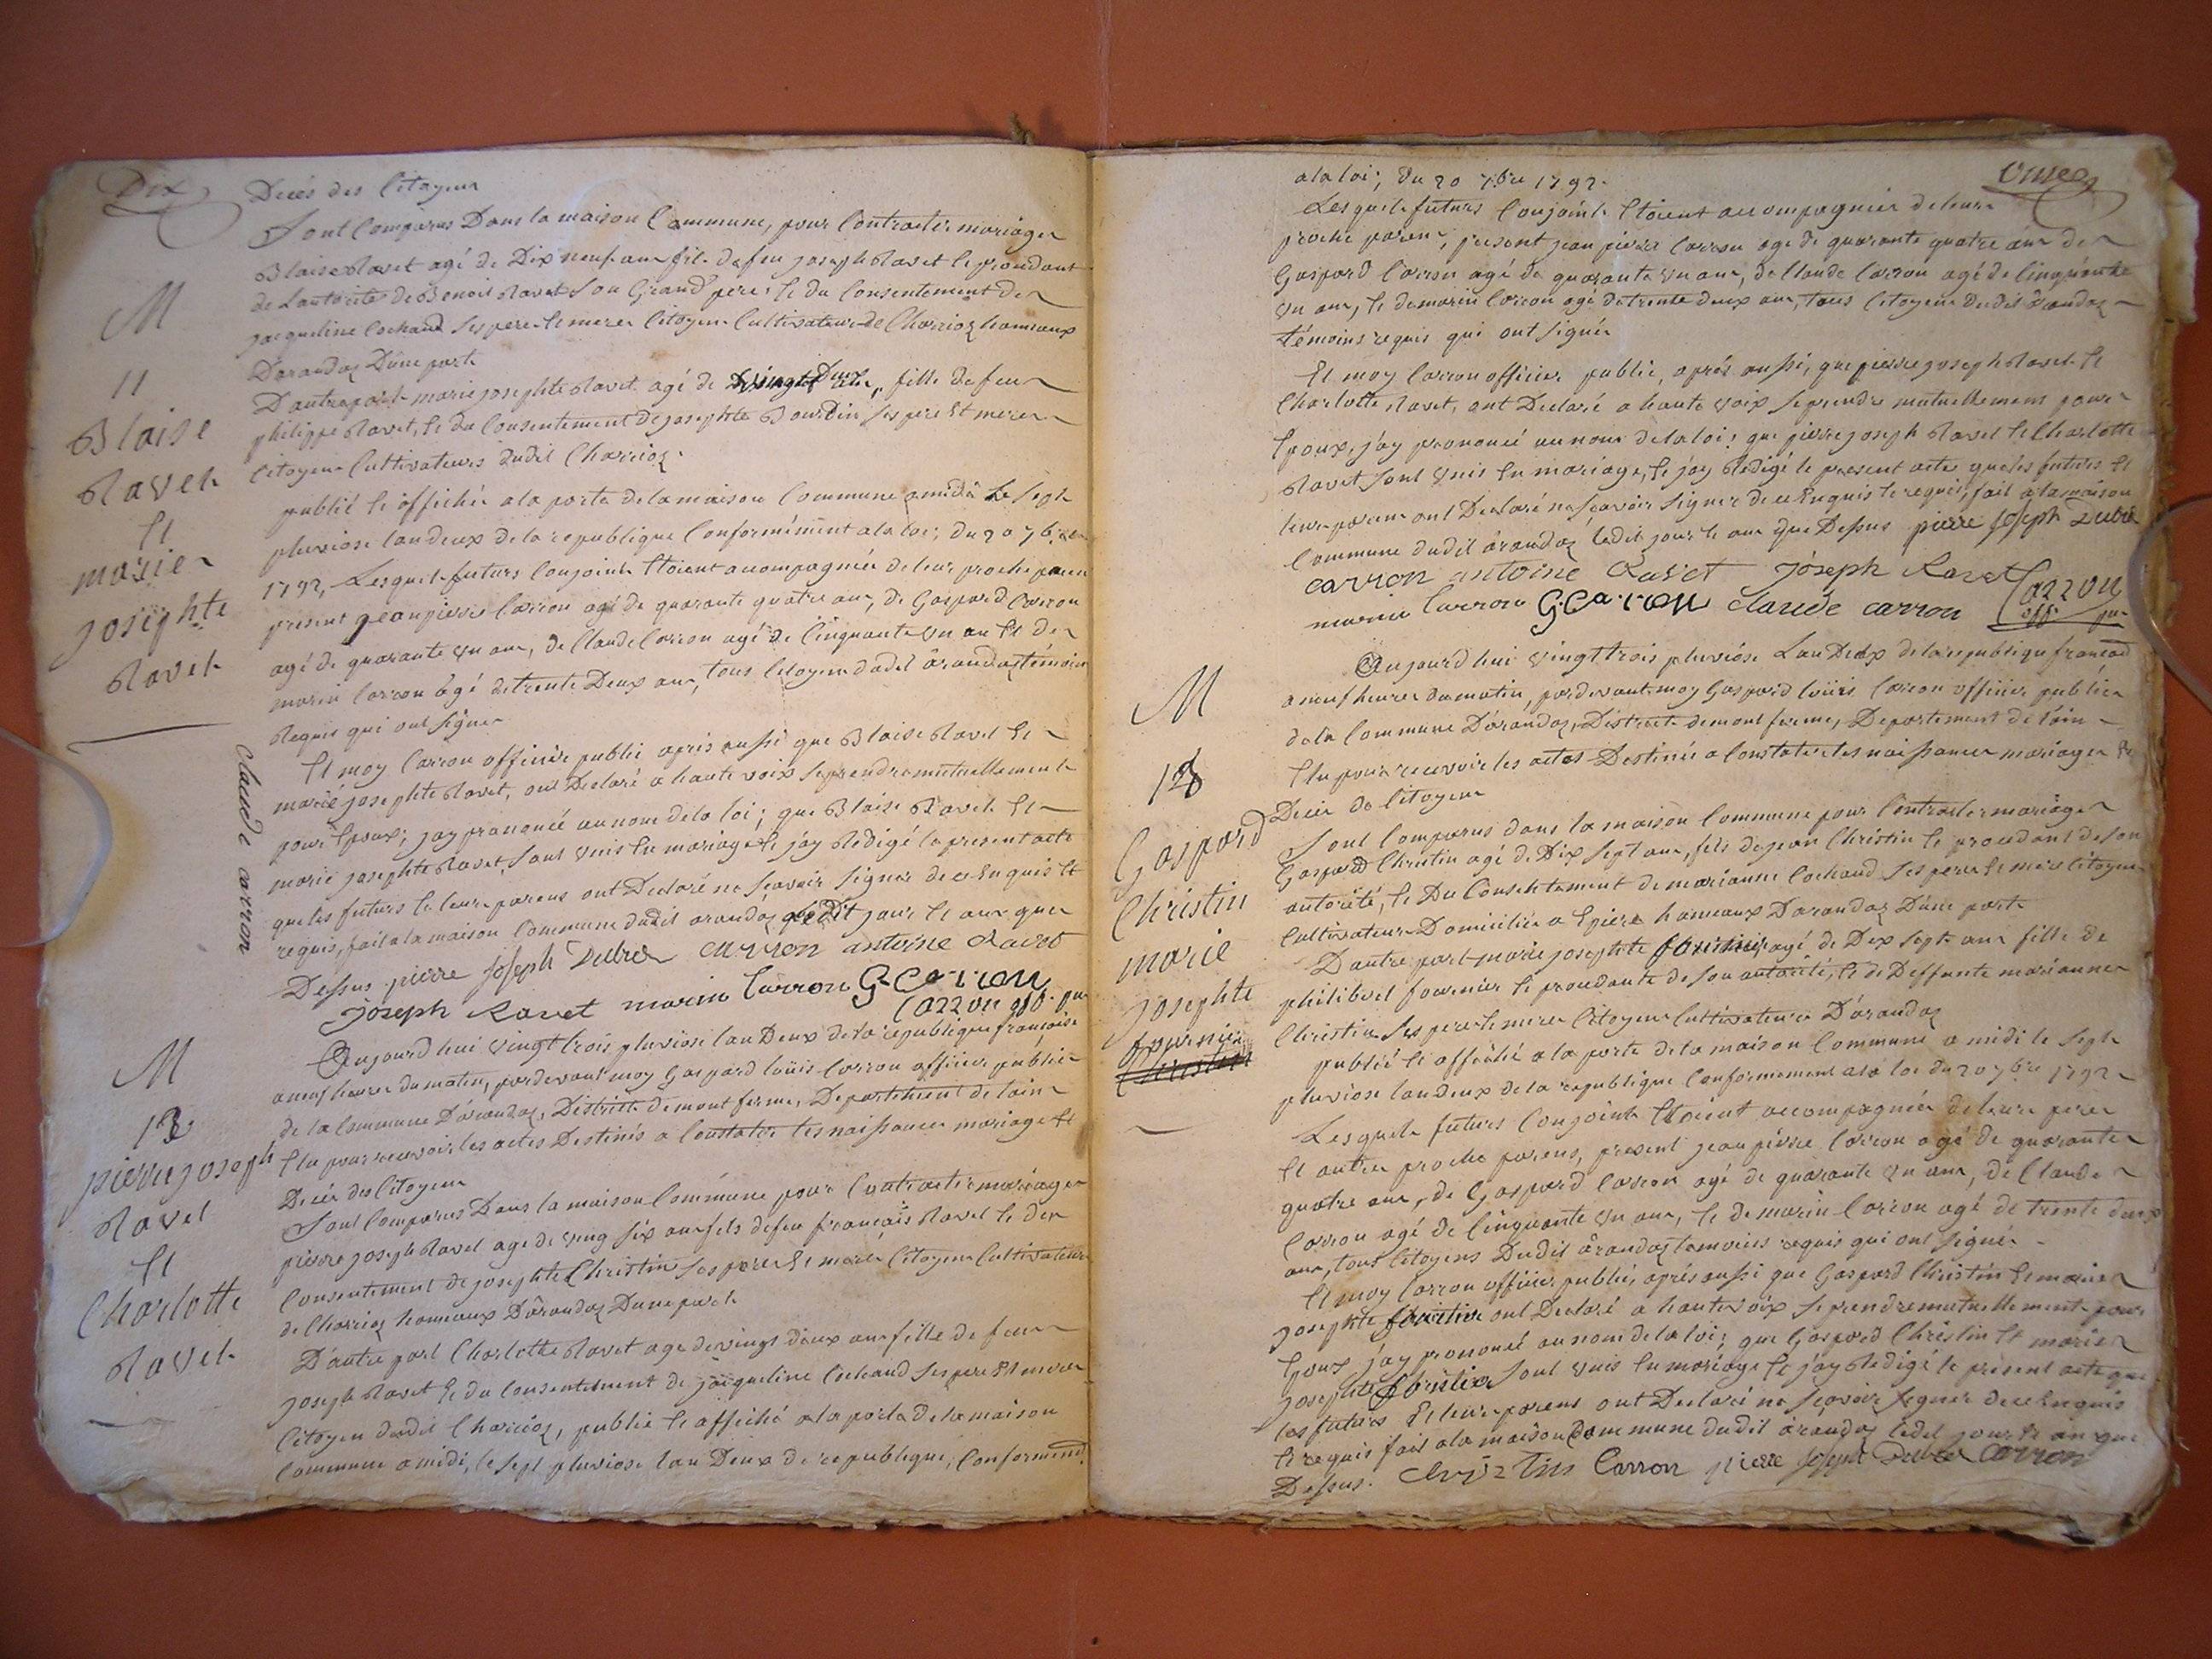 Dix
Decés des Citoyens
Sont Comparus Dans la maison Commune, pour Contracter mariage
Blaise Ravet agé de Dix neuf ans fils de feu joseph Ravet le prondant
de Lautorité de Benoit Ravet Son Grand pere; et du Consentement de
jacqueline Cochand Ses pere et mere Citoyens Cultivateurs de Charrioz hameaux
Darandaz Dune parte
D'autre part marie josephte Ravet agé de vingt Deux, fille de feu
philippe Ravet, et du Consentement de josephte Bourdin Ses pere Et mere
Citoyens Cultivateurs dudit Charrioz.
publié et affiché a la porte de la maison Commune a midi Le Sept
pluviose lan deux de la republique Conformément a la loi; du 20 7bre
1792, Lesquels futurs Conjoints Etoient accompagnés de leur proche parens
present jean pierre Carron agé de quarante quatre ans, de Gaspard Carron
agé de quarante un ans, de Claude Carron agé de Cinquante un an Et de
marin Carron âgé de trente Deux ans, tous Citoyens dudit ârandaz témoins
Requis qui ont Signer
Et moy Carron officier public apris aussi que Blaise Ravet Et
marie josephte Ravet, ont Declaré a haute voix Se prendre mutuellement
pour Epoux; jay prononcé au nom de la loi; que Blaise Ravet Et
marie josephte Ravet, Sont unis En mariage Et jay Redigé le present acte
que les futurs Et leurs parens ont Declaré ne Scavoir Signer de ce Enquis Et
requis, fait a la maison Commune dudit arandaz ledit jour Et an que
Dessus pierre joseph Dubre carron antoine Ravet
joseph Ravet marin Carron G Carron
Carron off. pu
Claude carron
M
11
Blaise
Ravet
Et
marie
josephte
Ravet
Aujourd hui vingt trois pluviose lan Deux de la republique françoise
a neuf heures du matin, pardevant moy Gaspard loüis Carron officier public
de la Commune D'arandaz, District de mont ferme, Departement de lain
Elu pour recevoir les actes Destinés a Constater les naissances mariage Et
Decés des Citoyens
Sont Comparus Dans la maison Commune pour Contracter mariage
pierre joseph Ravet age de ving Six ans fils de feu françois Ravet Et de
Consentement de josephte Christin Ses pere Et mere Citoyens Cultivateurs
de Charrioz hameaux Dârandaz Dune parte
D'autre part Charlotte Ravet age de vingt deux ans fille de feu
joseph Ravet Et du Consentement de jacqueline Cochand Ses pere Et mere
Citoyen dudit Charrioz, publié Et affiché a la porte de la maison
Commune a midi, le Sept pluviose lan Deux de republique, Conforment
M
12
pierre joseph
Ravet
Et
Charlotte
Ravet
Onze
a la loi; du 20 7bre 1792.
Lesquels futurs Conjoints Etoient accompagnés de leurs
proche parens, present jean pierre Carron age de quarante quatre ans de
Gaspard Carron agé de quarante un ans, de Claude Carron agé de Cinquante
un ans, Et de marin Carron agé de trente deux ans, tous Citoyens dudit arandaz
témoins requis qui ont Signés
Et moy Carron officier public, aprés aussi, que pierre joseph Ravet Et
Charlotte Ravet, ont Declaré a haute voix Se prendre mutuellement pour
Epoux, j'ay prononcé au nom de la loi; que pierre joseph Ravet Et Charlotte
Ravet Sont unis En mariage, Et jay Redigé le present acte que les futurs Et
leurs parens ont Declaré ne Scavoir Signer de ce Enquis Et requis, fait a la maison
Commune dudit ârandaz ledit jour Et an que Dessus pierre joseph Dubre
carron antoine Ravet joseph Ravet Carron
marin Carron G Carron Claude carron off. pu
Aujourd hui vingt trois pluviose Lan Deux de la republique francoise
a neuf heures du matin, pardevant moy Gaspard loüis Carron officier public
de la Commune D'arandaz, District de mont ferme, Departement de l'ain
Elu pour recevoir les actes Destinés a Constater les naissances mariages Et
Decés de Citoyens
Sont Comparus dans la maison Commune pour Contracter mariage
Gaspard Christin agé de Dix Sept ans, fils de jean Christin Et prondant de Son
autorité, Et Du Consentement de marianne Cochand Ses pere Et mere Citoyens
Cultivateurs Domiciliés a Epierre hameaux Darandaz Dune parte
D'autre part marie josephte fournier, agé de Dix Sept ans fille de
philibert fournier Et prondante de Son autorité, Et de Deffunte marianne
Christin Ses pere Et mere Citoyens Cultivateurs D'arandaz
publié Et affiché a la porte de la maison Commune a midi le Sept
pluviose lan deux de la republique Conformement a la loi du 20 7bre 1792
Lesquels futurs Conjoints Etoient accompagnés de leurs pere
Et autres proche parens, present jean pierre Carron agé de quarante
quatre ans, de Gaspard Carron agé de quarante un ans, de Claude
Carron agé de Cinquante un ans, Et de marin Carron agé de trente deux
ans, tous Citoyens Dudit ârandaz temoins requis qui ont Signés
Et moy Carron officier public, aprés aussi que Gaspard Christin Et marie
josephte ont Declaré a haute voix Se prendre mutuellement pour
Epoux, j'ay prononcé au nom de la loi; que Gaspard Christin Et marie
josephte Sont unis En mariage Et j'ay Redigé le present acte que
les futurs Et leurs parens ont Declaré ne Sçavoir Signer de ce Enquis
Et requis fait a la maison Commune dudit ârandaz ledit jour Et an que
Dessus. Carron pierre joseph Dubre Carron
M
13
Gaspard
Christin
marie
josephte
fournier